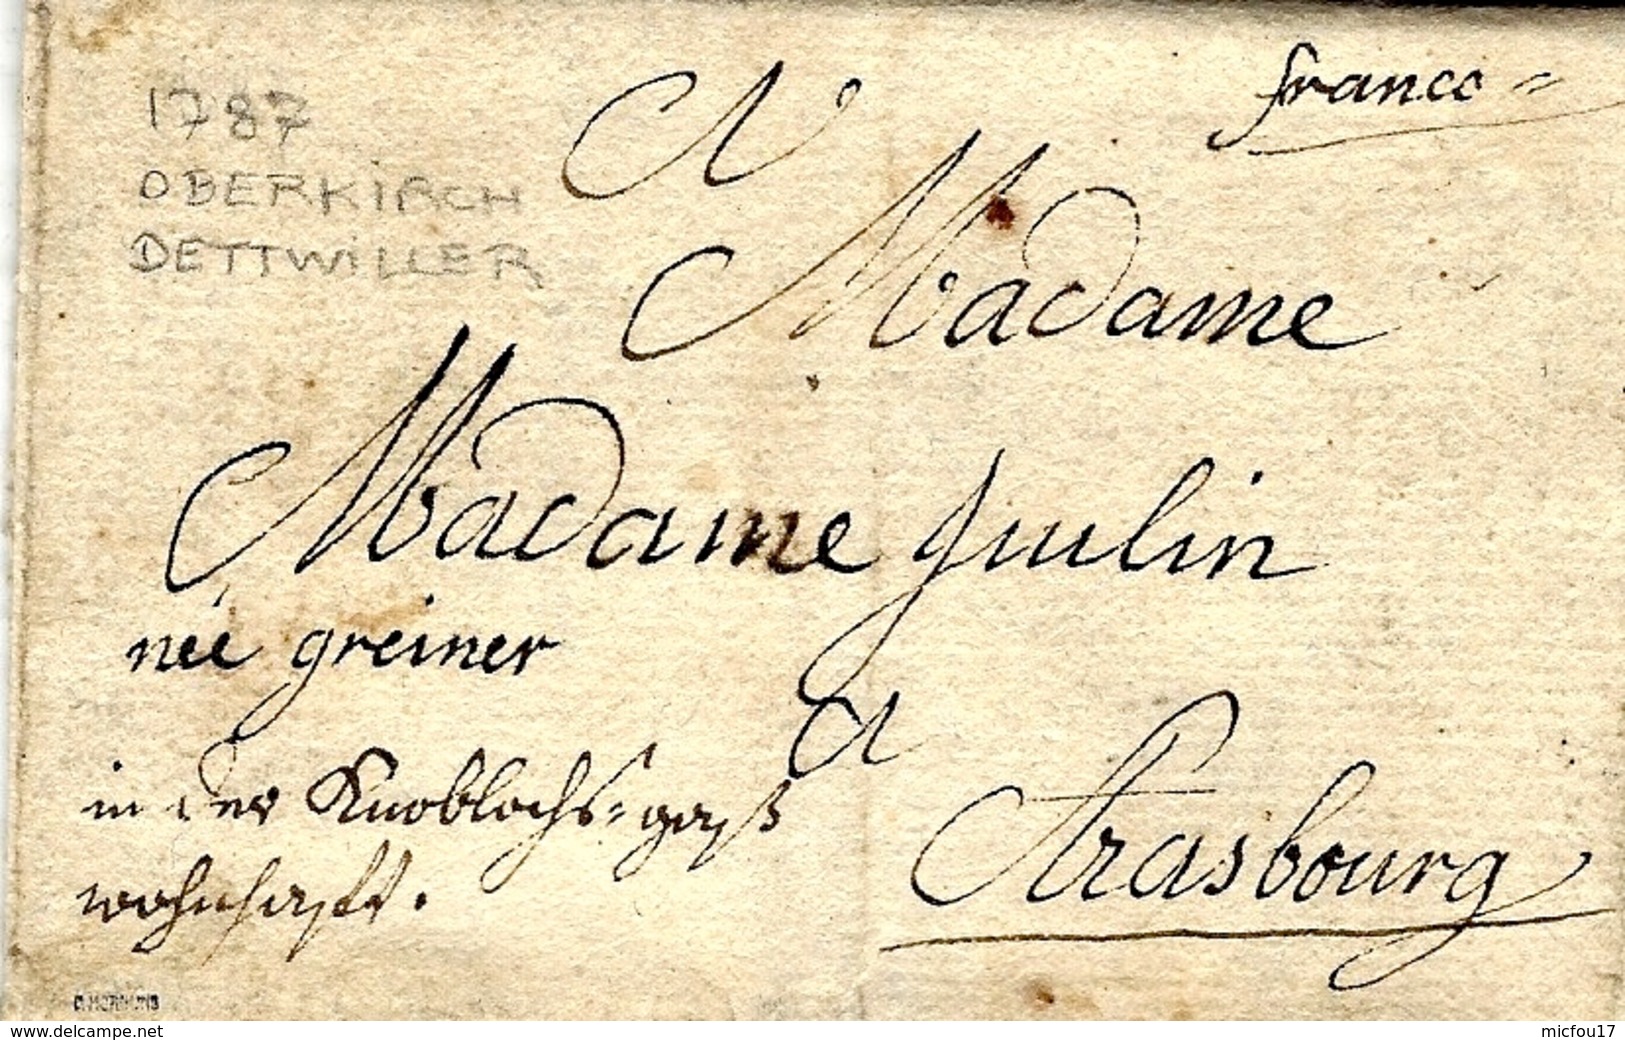 franco =
1787
OBERKIRCH
DETTWILLER
A
Madame
Madame Juulin
née greiner
A
Strasbourg
in der Knoblochs=gaß
wohnhafft.
www.delcampe.net
micfou17